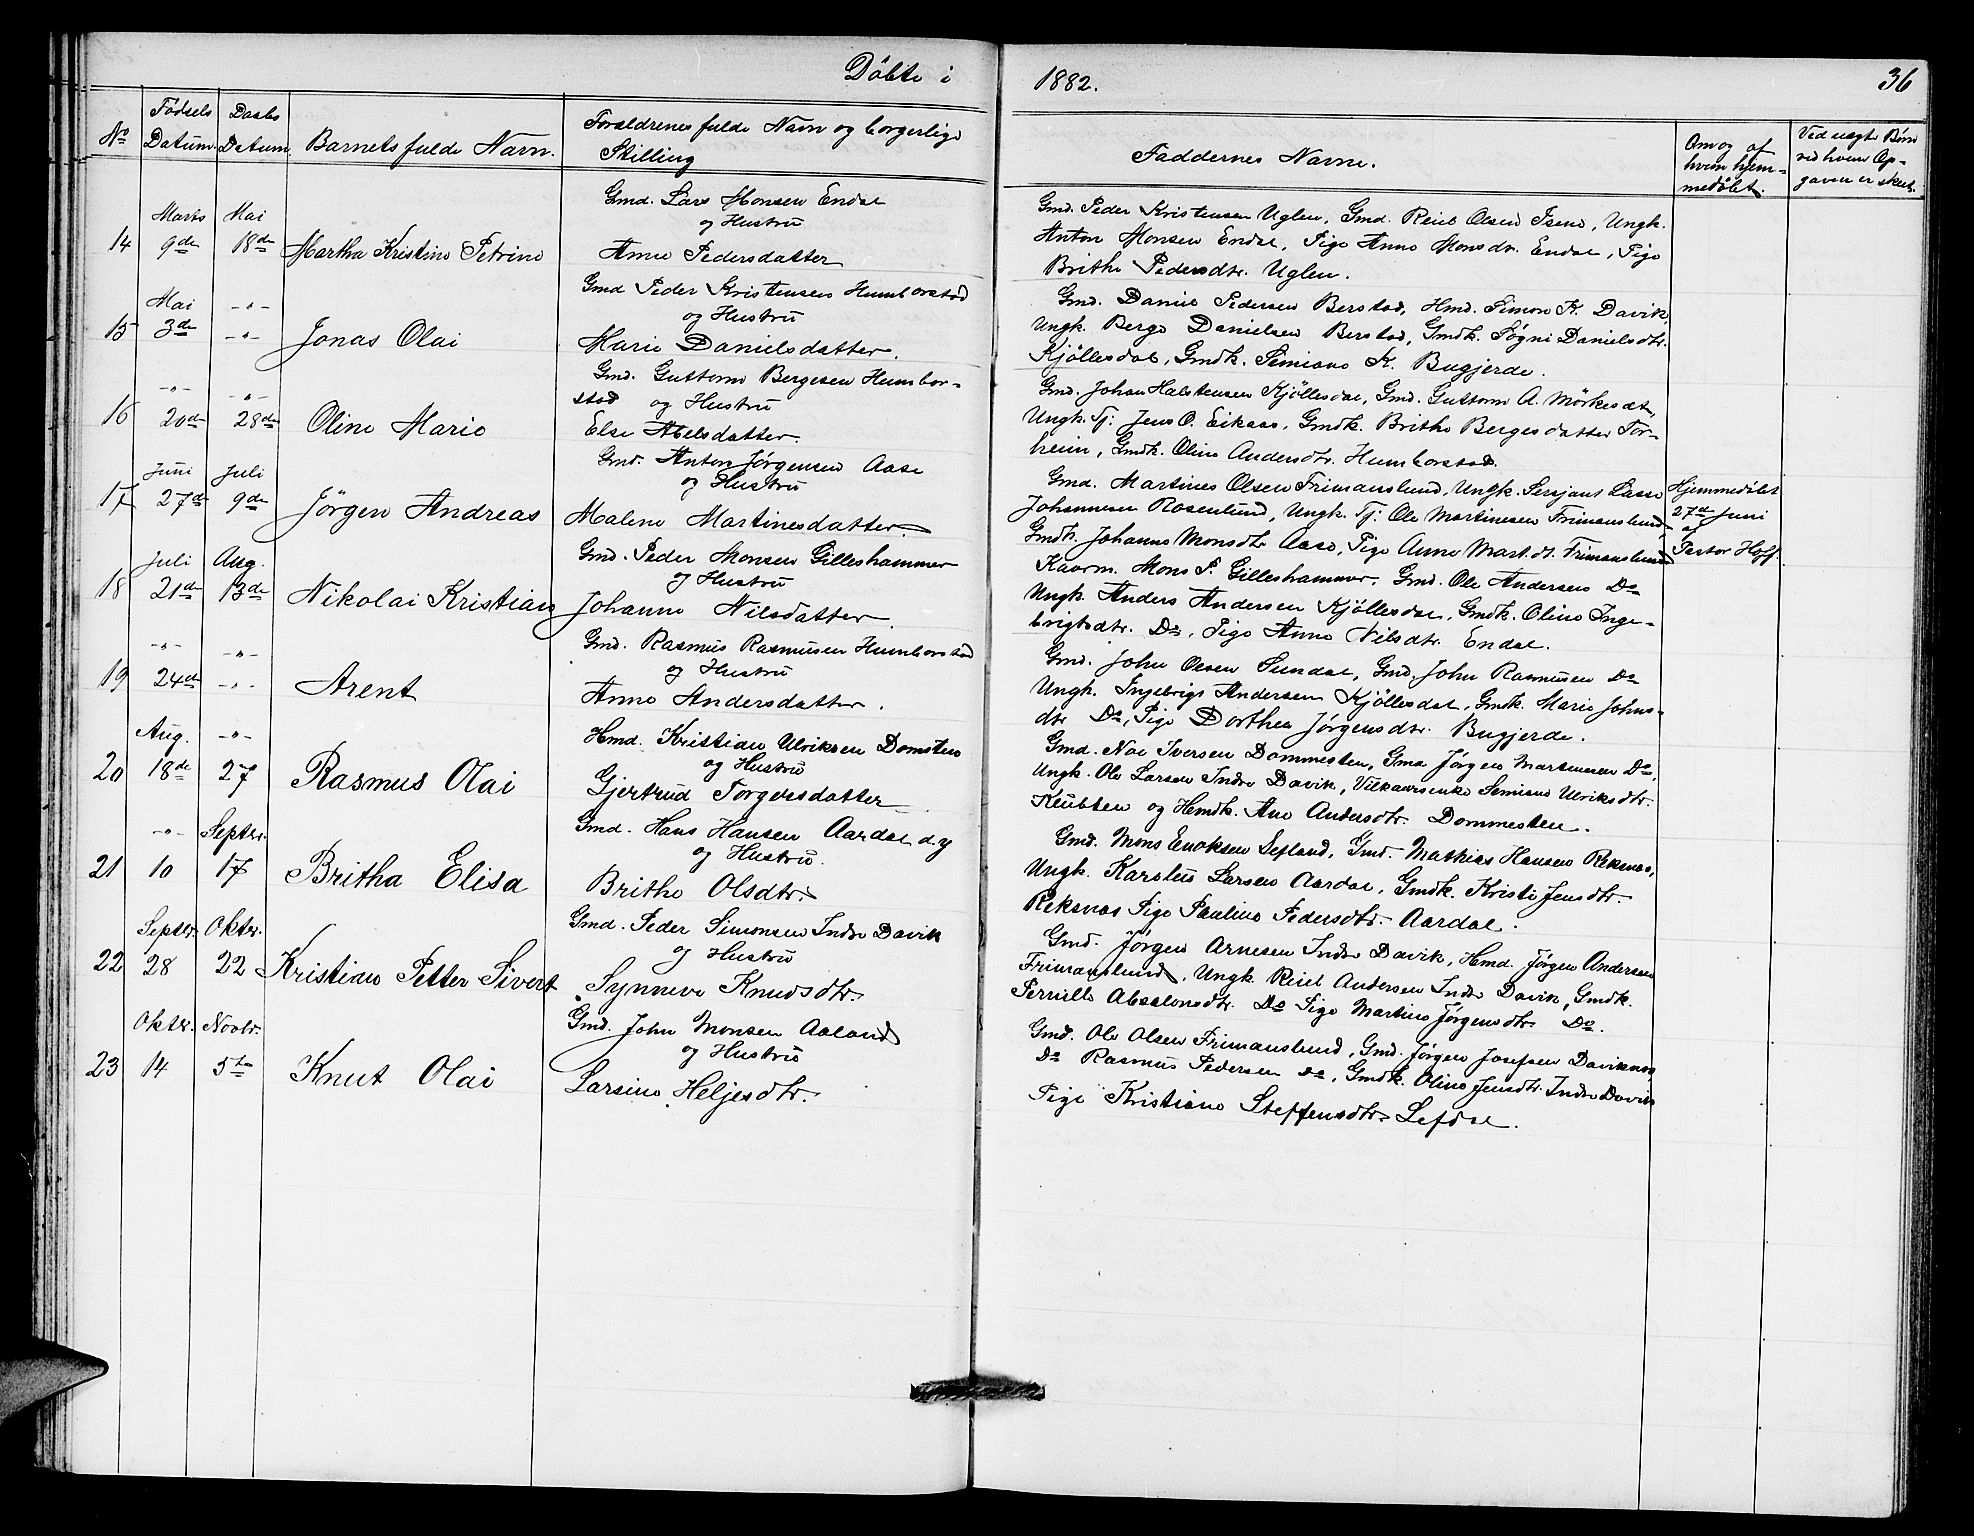 Döbte i 1882. 36
No
Fødsels Datum.
Daabs Datum.
Barnets fulde Navn.
Forældrenes fulde Navn og borgerlige Stilling
Faddernes Navne.
Om og af hvem hjemmedøbt.
Ved uægte Børn ved hvem Opgaven er skeet.
14
Marts 9de
Mai 18de
Martha Kristine Petrine
Gmd. Lars Monsen Endal
og Hustru
Anne Pedersdatter
Gmd. Peder Kristensen Uglen, Gmd. Reiel Olsen Isene, Ungk.
Anton Monsen Endal, Pige Anne Monsdtr. Endal, Pige
Brithe Pedersdtr. Uglen.
15
Mai 3de
-"- -"-
Jonas Olai
Gmd Peder Kristensen Humborstad
og Hustru
Marie Danielsdatter.
Gmd. Daniel Pedersen Berstad, Hmd. Simon K. Davik,
Ungk. Berge Danielsen Berstad, Gmdk. Søgni Danielsdtr.
Kjöllesdal, Gmdk. Simiane K. Bugjerde.
16
-"- 20de
-"- 28de
Oline Marie
Gmd. Guttorm Bergesen Humbor-
stad og Hustru
Else Abelsdatter.
Gmd. Johan Halstensen Kjöllesdal, Gmd. Guttorm A. Mörkesdal,
Ungk. Tj: Jens O. Eikaas, Gmdk. Brithe Bergesdatter Tor-
heim, Gmdk. Oline Andersdtr. Humborstad.
17
Juni 27de
Juli 9de
Jörgen Andreas
Gmd. Anton Jörgensen Aase
og Hustru
Malene Martinesdatter.
Gmd. Martines Olsen Frimanslund, Ungk. Sersjant Lasse
Johannesen Rosenlund, Ungk. Tj: Ole Martinesen Frimanslund,
Gmdk. Johanne Monsdtr Aase, Pige Anne Mart.dt. Frimanslund
Hjemmedøbt
27de Juni
af
Pastor Hoff.
18
Juli 21de
Aug. 13de
Nikolai Kristian
Gmd. Peder Monsen Gilleshammer
og Hustru
Johanne Nilsdatter.
Kaarm. Mons P. Gilleshammer, Gmd. Ole Andersen Do
Ungk. Anders Andersen Kjöllesdal, Gmdk. Oline Inge-
brigtsdtr. Do, Pige Anne Nilsdtr. Endal.
19
-"- 24de
-"- -"-
Arent
Gmd. Rasmus Rasmusen Humborstad
og Hustru
Anne Andersdatter.
Gmd. John Olsen Sundal, Gmd. John Rasmusen Do
Ungk. Ingebrigt Andersen Kjöllesdal, Gmdk. Marie Johns-
dtr Do, Pige Dorthea Jörgensdtr. Bugjerde.
20
Aug. 18de
-"- 27
Rasmus Olai
Hmd. Kristian Ulriksen Domsten
og Hustru
Gjertrud Torgersdatter
Gmd. Noe Iversen Dommesten, Gmd Jörgen Martinusen Do,
Ungk. Ole Larsen Indre Davik, Vilkaarsenke Simiane Ulriksdtr.
Klubben og Hmdk. Ane Andersdtr. Dommesten.
21
-"- 10
Septbr. 17
Britha Elisa
Gmd. Hans Hansen Aardal d.y
og Hustru.
Brithe Olsdtr.
Gmd. Mons Enoksen Sefland, Gmd. Mathias Hansen Reksnæs,
Ungk. Karolus Larsen Aardal, Gmdk. Kristi Jensdtr.
Reksnæs Pige Pauline Pedersdtr. Aardal.
22
Septbr. 28
Oktbr. 22
Kristian Petter Sivert
Gmd. Peder Simonsen Indre Davik
og Hustru
Synneve Knudsdtr.
Gmd. Jörgen Arnesen Indre Davik, Hmd. Jörgen Andersen
Frimanslund, Ungk. Reiel Andersen Indre Davik, Gmdk.
Pernille Absalonsdtr. Do Pige Martine Jörgensdtr Do.
23
Oktbr. 14
Novbr. 5te
Knut Olai
Gmd. John Monsen Aaland
og Hustru
Larsine Heljesdtr.
Gmd. Ole Olsen Frimanslund, Gmd. Jörgen Josefsen Daviknes,
Do Rasmus Pedersen Do, Gmdk. Oline Jensdtr. Indre Davik
Pige Kristiane Steffensdtr. Lefdal.